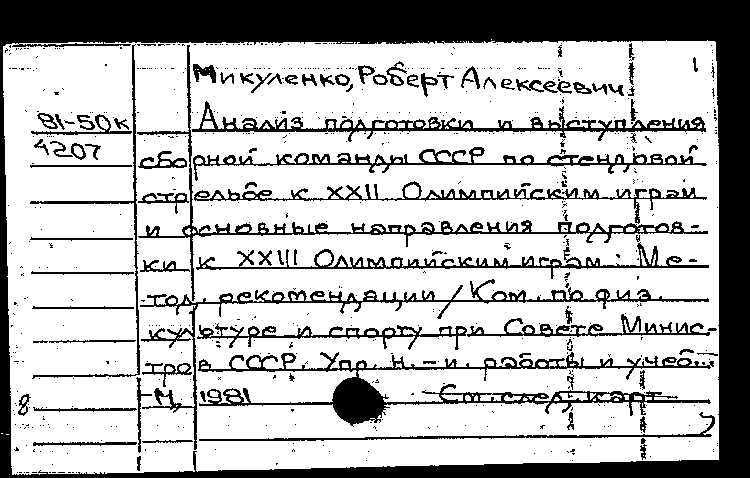 1
Микуленко, Роберт Алексеевич.
81-50к Анализ подготовки и выступления
4207 сборной команды СССР по стендовой
стрельбе к XXII Олимпийским играм
и основные направления подготов-
ки к XXIII Олимпийским играм: Ме-
тод. рекомендации / Ком. по физ.
культуре и спорту при Совете Минис-
тров СССР. Упр. н.-и. работы и учеб...
8 М, 1981 См. след. карт